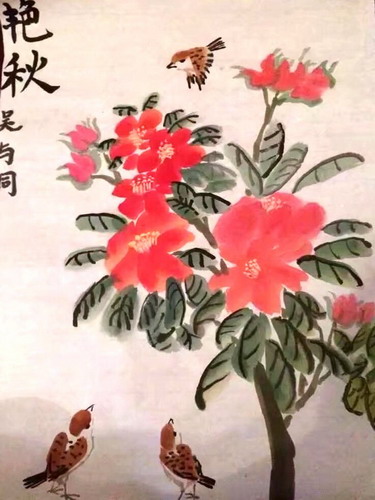 艳秋
吴与同